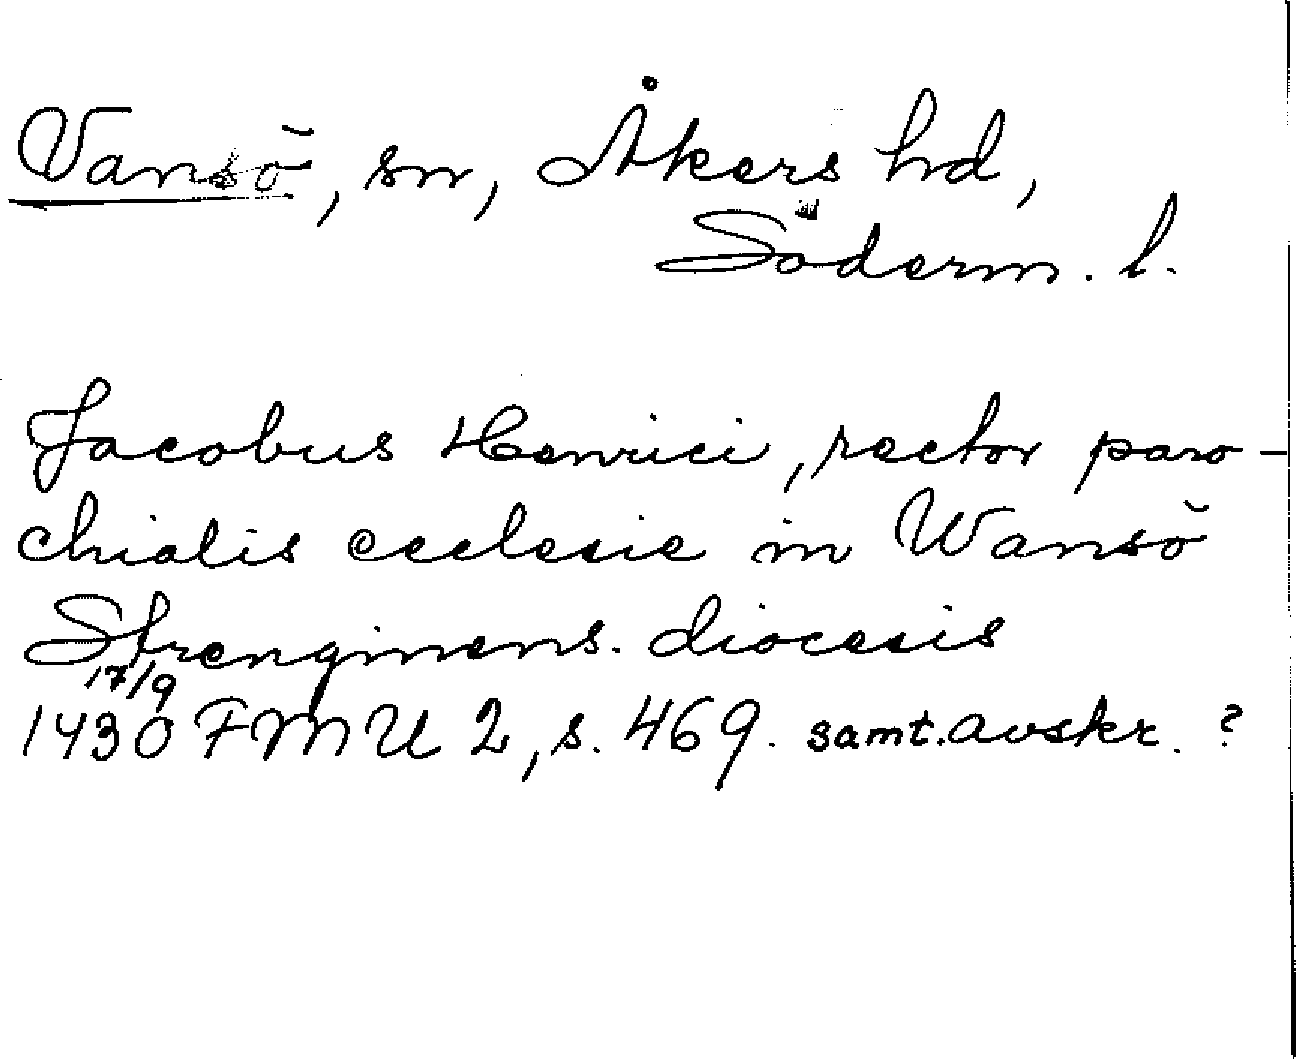 Vansö, sn, Åkers hd,
Söderm. l.
Jacobus Henrici, rector paro-
chialis ecclesie in Wansö
Strenginens. diocesis
17/9
1430 FMU 2, s. 469. samt. avskr. ?